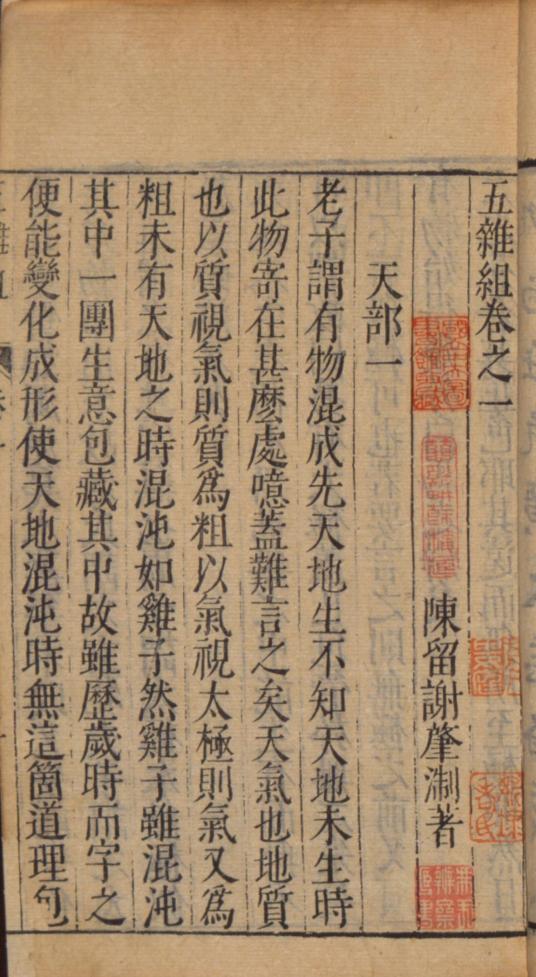 五雜組卷之一
陳留謝肇淛著
天部一
老子謂有物混成先天地生不知天地未生時
此物寄在甚麽處噫蓋難言之矣天氣也地質
也以質視氣則質爲粗以氣視太極則氣又爲
粗未有天地之時混沌如雞子然雞子雖混沌
其中一團生意包藏其中故雖歷歲時而字之
便能變化成形使天地混沌時無這箇道理包